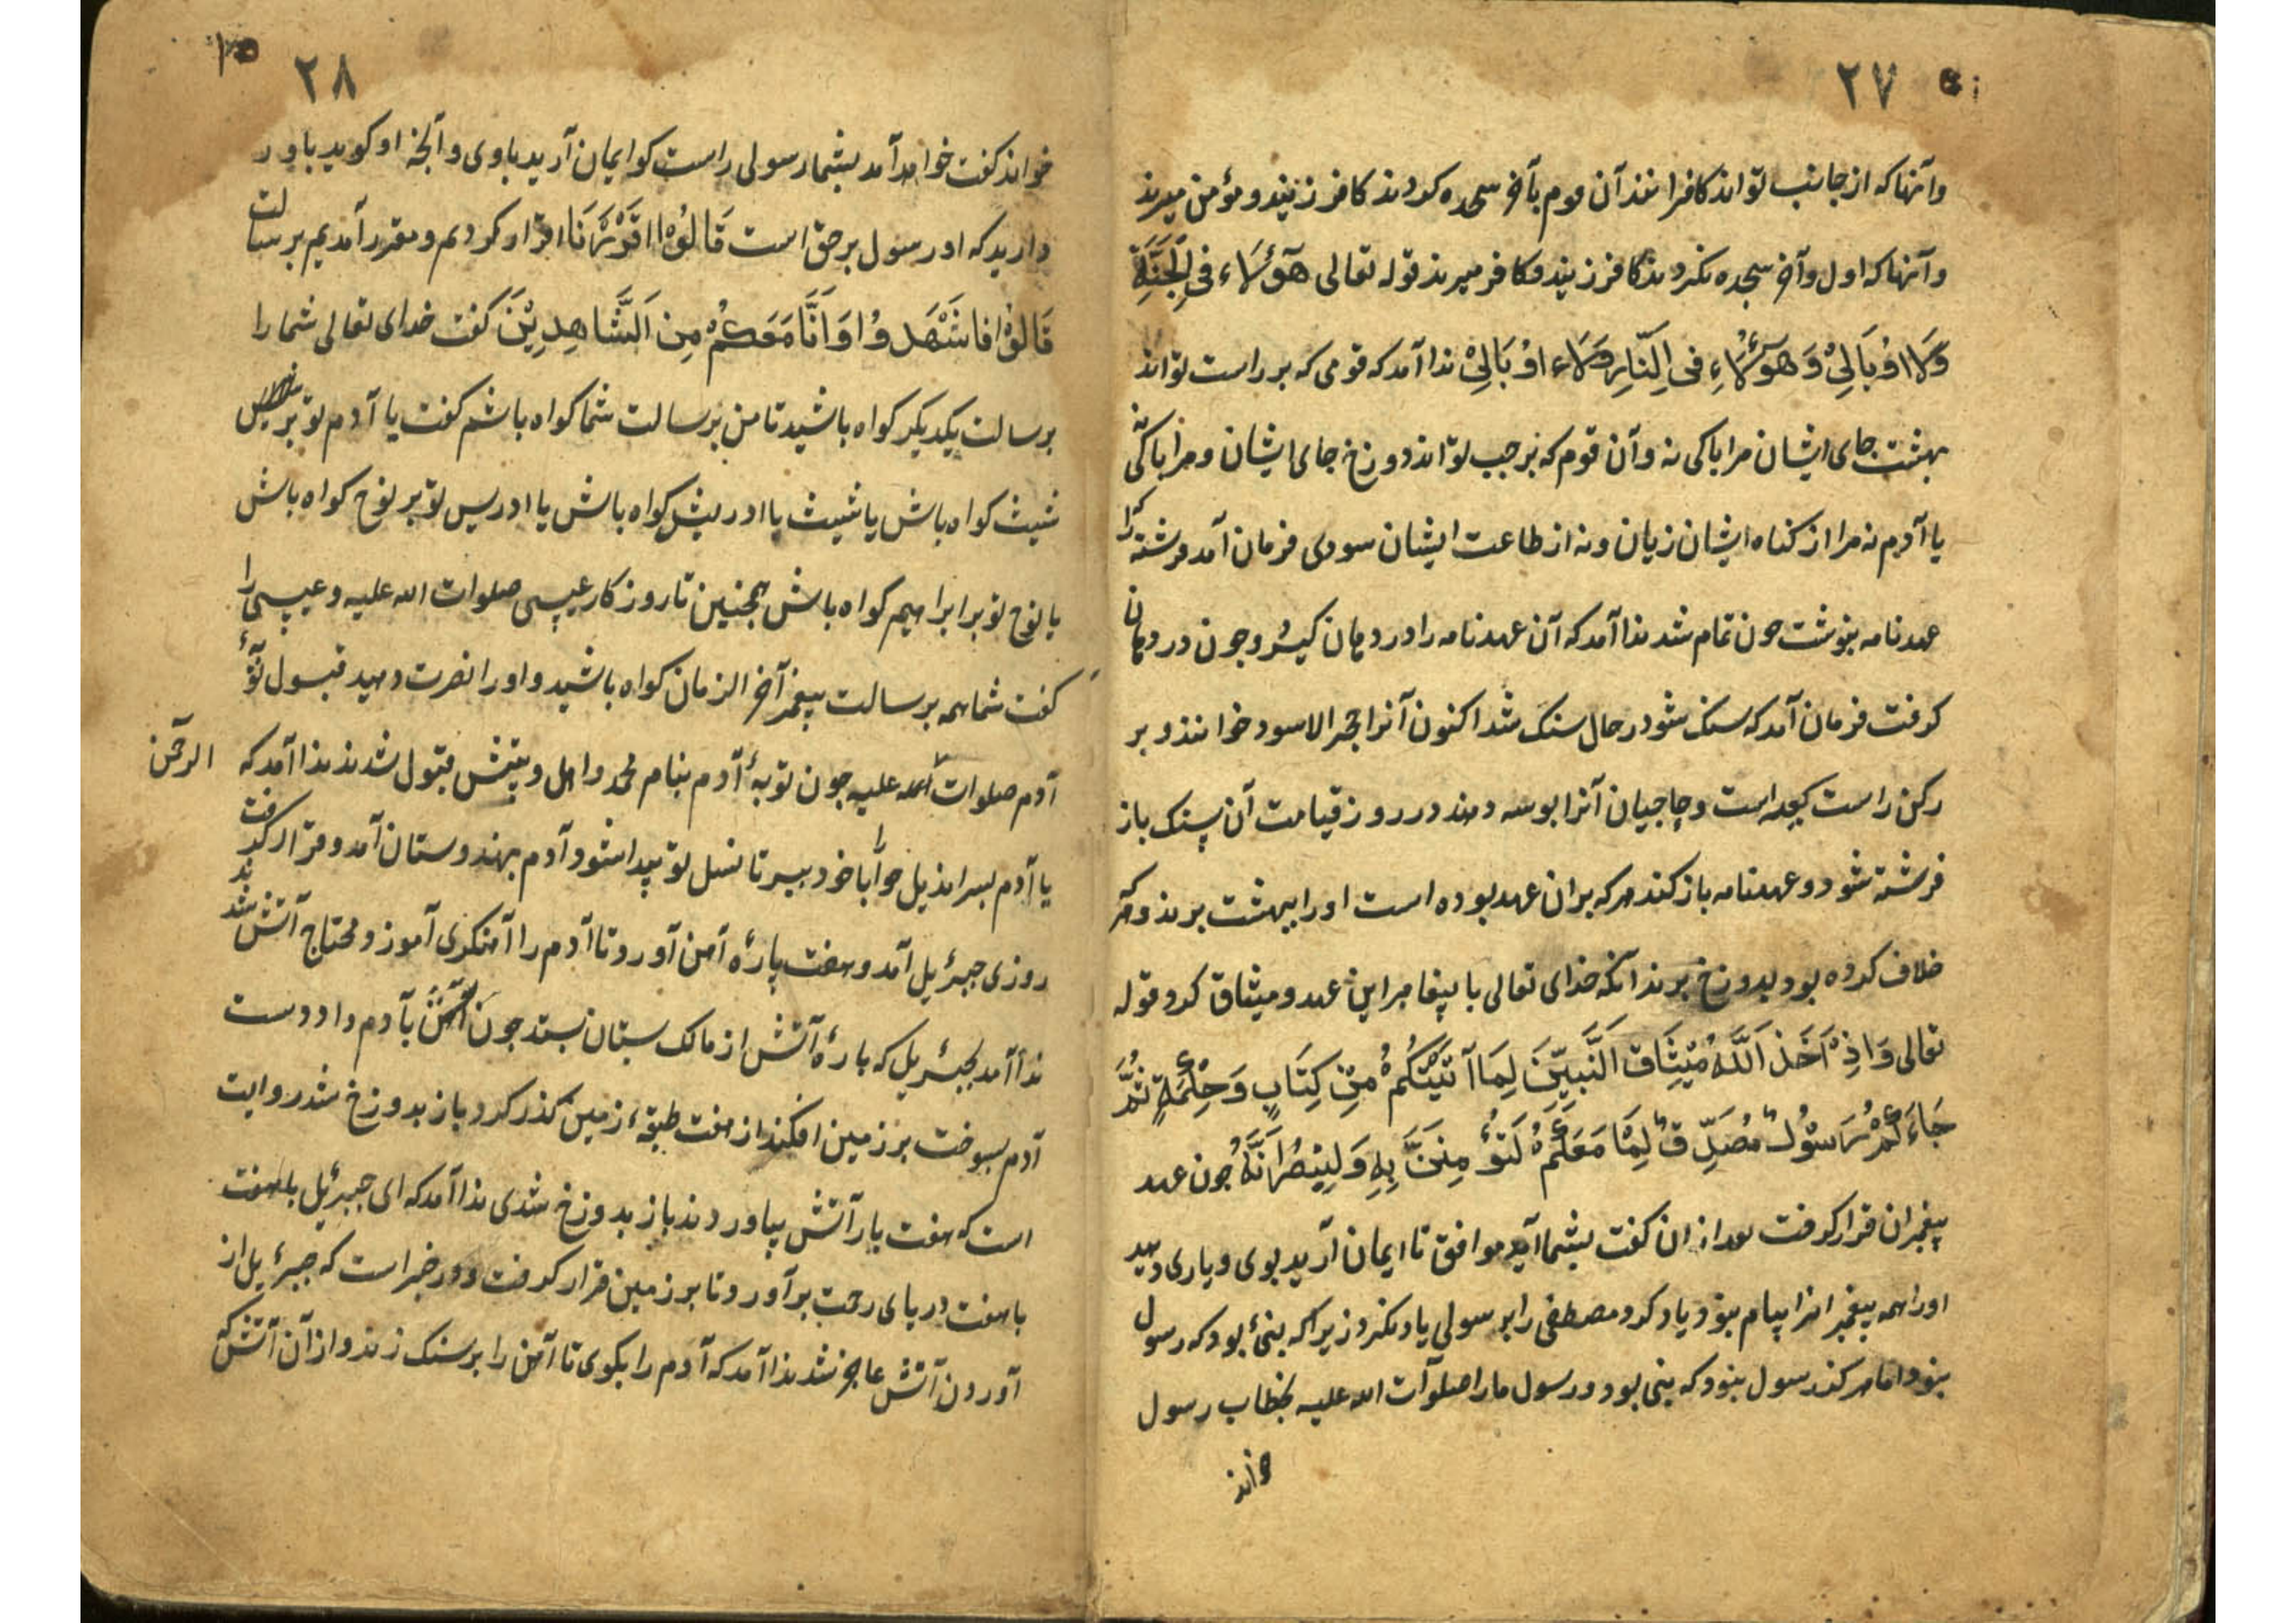 ۲۷
وآنهاکه از جانب تواند کافرانند آن قوم بآخر سجده کردند کافر زیند و مؤمن میرند
وآنهاکه اول وآخر سجده نکردند کافر زیند و کافر میرند قوله تعالی هَٓؤُلَاء فِی الْجَنَّةِ
وَلَا اُوبَالِیْ وَهَؤُلَاءِ فی النَّارِ وَلَاء اوُبَالِیْ ندا آمد که قومی که بر راست تواند
بهشت جای ایشان مرا باکی نه وآن قوم که بر چپ تواند دوزخ جای ایشان و مرا باکی نه
یا آدم نه مرا از کناه ایشان زیان ونه از طاعت ایشان سودی فرمان آمد فرشته را که
عهدنامه بنوشت جون تمام شد ندا آمد که آن عهدنامه را در دهان کیر و جون در دهان
کرفت فرمان آمد که سنک شو در حال سنک شد اکنون آنرا حجر الاسود خوانند و بر
رکن راست کعبه است و حاجیان آنرا بوسه دهند در روز قیامت آن سنک باز
فرشته شود و عهدنامه باز کند هرکه بران عهد بوده است اورا ببهشت برند و هرکه
خلاف کرده بود بدوزخ برند آنکه خدای تعالی با پیغامبران عهد و میثاق کرد قوله
تعالی وَاِذْ اَخَذَ اَللَّهُ مِیْثَاقَ اَلنَّبِیِّنَ لِمَا آتَیْتُکُمْ مِنْ کِتَابٍ وَحِکْمَةٍ ثُمَّ
جَاءَکُمْ رَسُوْلٌ مُصَدِّقٌ لِمَا مَعَکُمْ لَتُؤْمِنَنَّ بِهِ وَلَیَنْصُرَنَّهُ جون عهد
پیغمبران قرار کرفت بعد از ان کفت بشما آید موافق تا ایمان آرید بوی و یاری دهید
اورا همه پیغمبرانرا پیام بنود یاد کرد مصطفی را برسولی یاد نکرد زیراکه بنیٔ بود که رسول
بنود اما هرکز رسول بنود که بنی بود و رسول مارا صلوات الله علیه بخطاب رسول
خواند
۲۸
خواند کفت خواهد آمد بشما رسولی راست کو ایمان آرید باوی وآنجه او کوید باور
دارید که او رسول برحق است قَالُوْا اقْرَرْنَا اقرار کردیم و مقرر آمدیم برسالت
قَالُوْا فَاشْهَدُوْا وَاَنَّا مَعَکُمْ مِن اَلشَّاهِدِیْنَ کفت خدای تعالی شمارا
برسالت یکدیکر کواه باشید تا من برسالت شما کواه باشم کفت یا آدم تو بر
شیث کواه باش یا شیث با ادریش کواه باش یا ادریس تو بر نوح کواه باش
یا نوح تو بر ابراهیم کواه باش همجنین تا روزکار عیسی صلوات الله علیه و عیسی را
کفت شما همه برسالت پیغمبر آخر الزمان کواه باشید و اورا نصرت دهید قبول توبهٔ
آدم صلوات الله علیه جون توبهٔ آدم بنام محمد و اهل وبیتش قبول شدند ندا آمد که
الرحمن
یا آدم بسراندیل حوا را با خود ببر تا نسل تو پیدا شود آدم بهندوستان آمد و قرار کرفت
روزی جبرئیل آمد و هفت پارهٔ آهن آورد تا آدم را آهنکری آموزد محتاج آتش شدند
ندا آمد بجبرئیل که پارهٔ آتش از مالک بستان بستد جون آهن بآدم داد دست
آدم بسوخت بر زمین افکند از هفت طبقهٔ زمین کذر کرد باز بدوزخ شد روایت
است که هفت بار آتش بیاوردند باز بدوزخ شدی ندا آمد که ای جبرئیل هفت
با هفت دریای رحمت برآورد تا بر زمین قرار کرفت و در خبر است که جبرئیل از
آوردن آتش عاجز شد ندا آمد که آدم را بکوی تا آهن را بر سنک زند و از آن آتش که